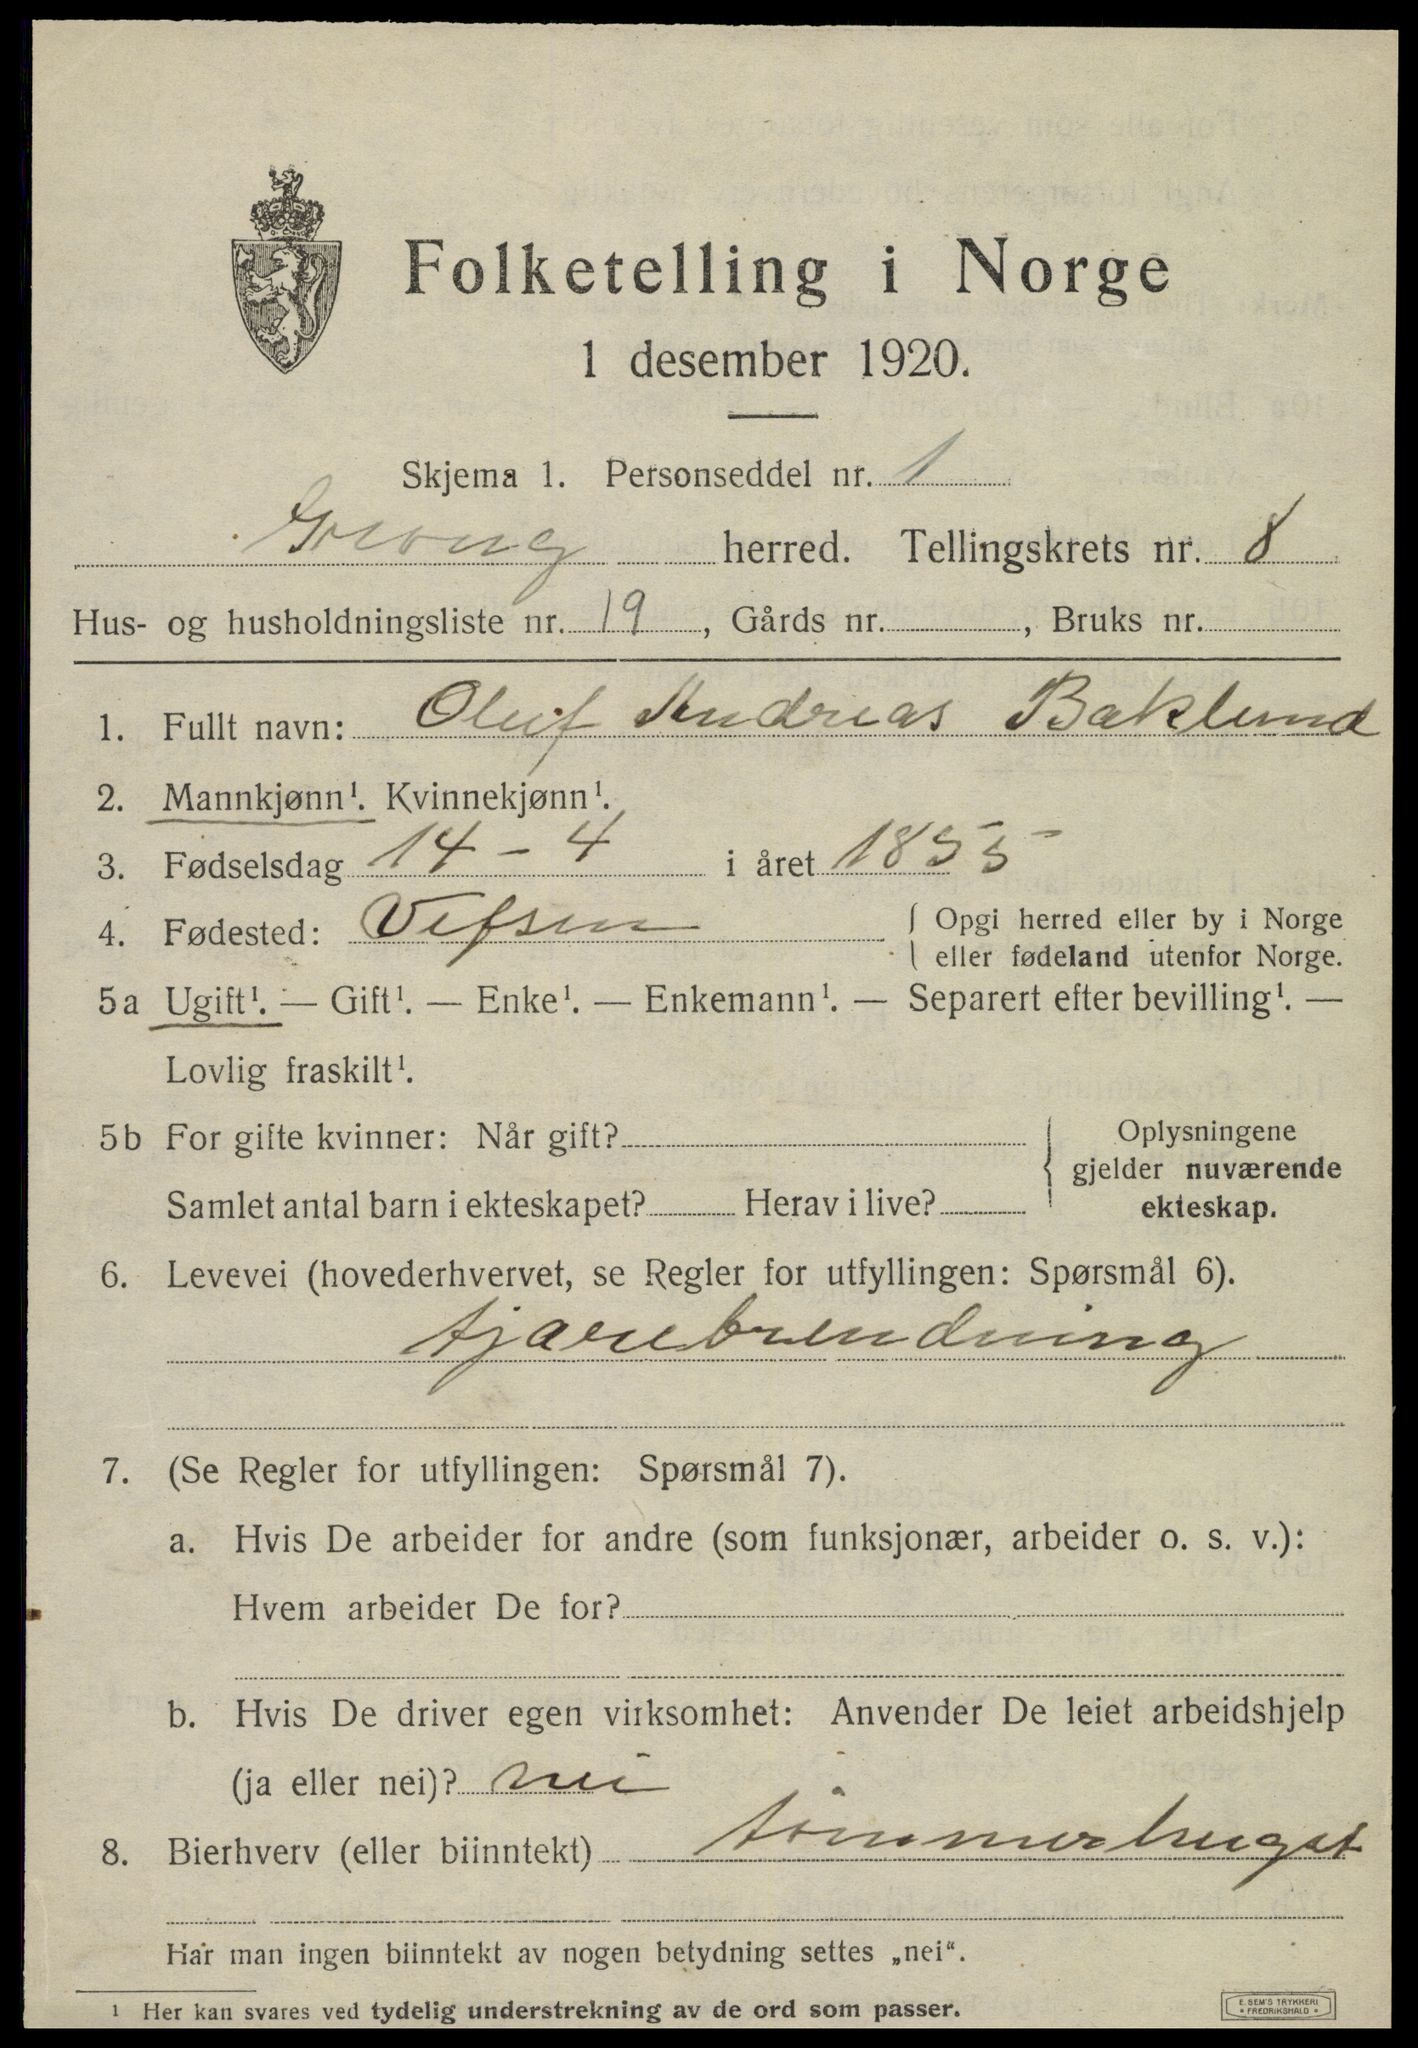 Folketelling i Norge
1 desember 1920.
Skjema 1. Personseddel nr. 1
Grong herred. Tellingskrets nr. 8
Hus- og husholdningsliste nr. 19, Gårds nr. , Bruks nr.
1. Fullt navn: Oluf Andreas Baklund
2. Mannkjønn¹. Kvinnekjønn¹.
3. Fødselsdag 14 - 4 i året 1855
4. Fødested: Vefsen { Opgi herred eller by i Norge
eller fødeland utenfor Norge.
5a Ugift¹. — Gift¹. — Enke¹. — Enkemann¹. — Separert efter bevilling¹. —
Lovlig fraskilt¹.
5b For gifte kvinner: Når gift? { Oplysningene
gjelder nuværende
Samlet antal barn i ekteskapet? Herav i live? ekteskap.
6. Levevei (hovederhvervet, se Regler for utfyllingen: Spørsmål 6).
tjærebrendning
7. (Se Regler for utfyllingen: Spørsmål 7).
a. Hvis De arbeider for andre (som funksjonær, arbeider o. s. v.):
Hvem arbeider De for?
b. Hvis De driver egen virksomhet: Anvender De leiet arbeidshjelp
(ja eller nei)? nei
8. Bierhverv (eller biinntekt) tømmerhugst
Har man ingen biinntekt av nogen betydning settes „nei“.
¹ Her kan svares ved tydelig understrekning av de ord som passer.
E. SEM'S TRYKKERI
FREDRIKSHALD